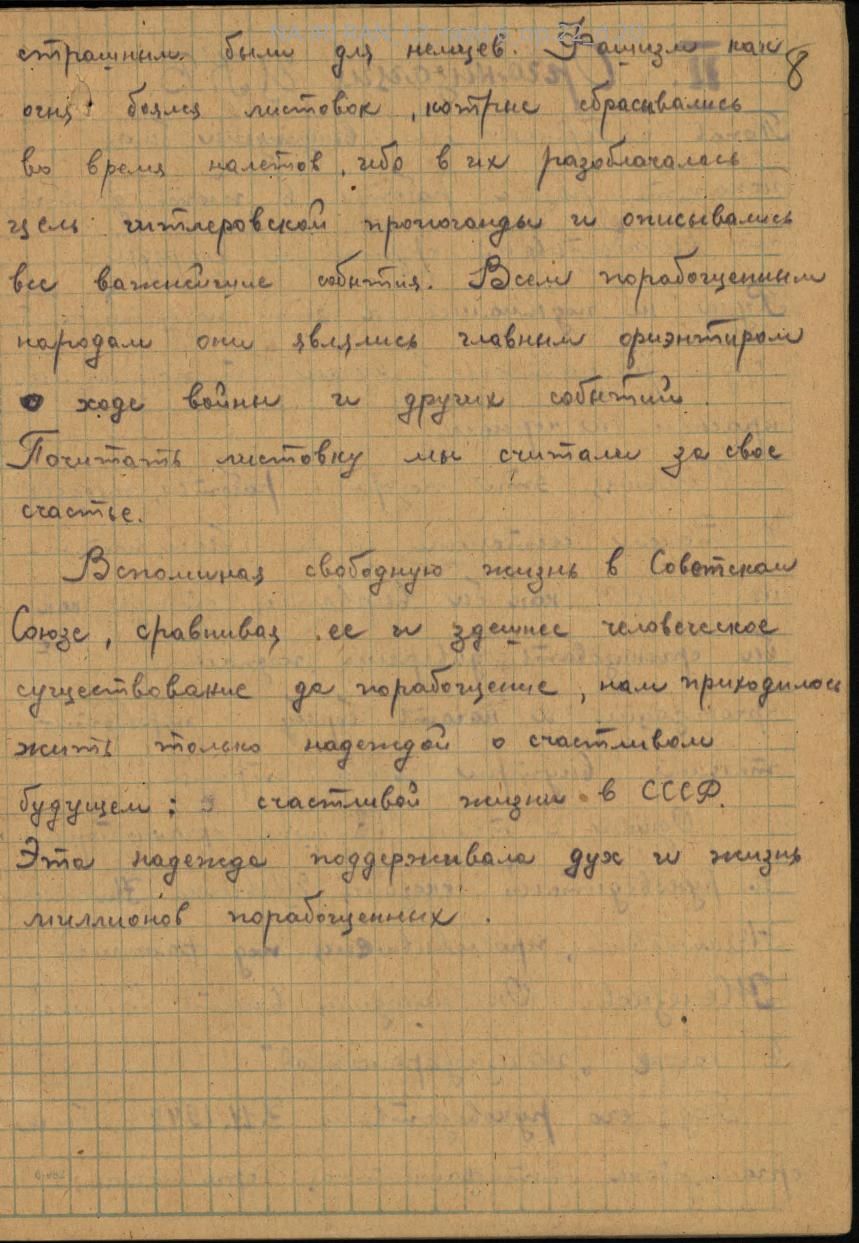 8
страшным были для немцев. Фашизм как
огня боялся листовок, котрые сбрасывались
во время налетов, ибо в их разоблачалась
цель гитлеровской пропоганды и описывались
все важнейшие события. Всем порабощенным
народам они являлись главным ориэнтиром
о ходе войны и других событий.
Почитать листовку мы считали за свое
счастье.
Вспоминая свободную жизнь в Советском
Союзе, сравнивая ее и здешнее человеческое
существование да порабощение, нам приходилось
жить только надеждой о счастливом
будущем: о счастливой жизни в СССР.
Эта надежда поддерживала дух и жизнь
миллионов порабощенных.